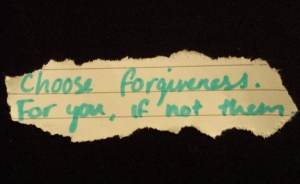 Choose forgiveness.
For you, if not them.